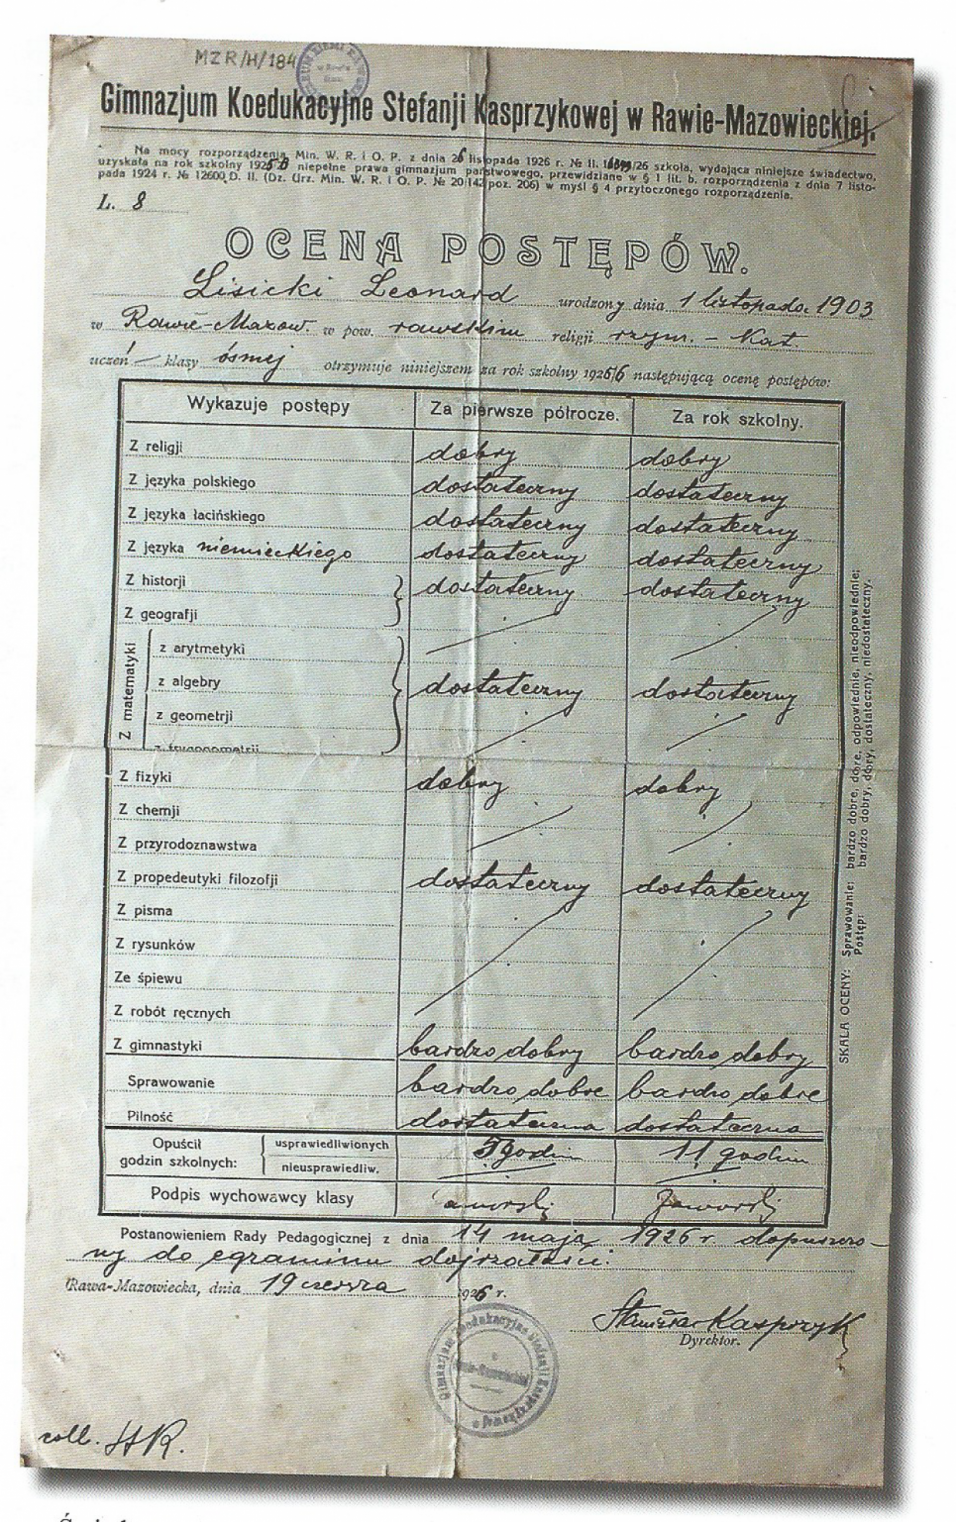 MZR/H/184
Gimnazjum Koedukacyjne Stefanji Kasprzykowej w Rawie-Mazowieckiej.
Na mocy rozporządzenia Min. W. R. i O. P. z dnia 26 listopada 1926 r. № II. /26 szkoła, wydająca niniejsze świadectwo,
uzyskała na rok szkolny 192 niepełne prawa gimnazjum państwowego, przewidziane w § 1 lit. b. rozporządzenia z dnia 7 listo-
pada 1924 r. № 12600 D. II. (Dz. Urz. Min. W. R. i O. P. № 20/142 poz. 206) w myśl § 4 przytoczonego rozporządzenia.
L. 8
OCENA POSTĘPÓW.
Lisicki Leonard urodzony dnia 1 listopada 1903
w Rawie-Mazow. w pow. rawskim religji rzym. - kat.
uczeń klasy ósmej otrzymuje niniejszem za rok szkolny 1925/6 następującą ocenę postępów:
Wykazuje postępy Za pierwsze półrocze. Za rok szkolny.
Z religji dobry dobry
Z języka polskiego dostateczny dostateczny
Z języka łacińskiego dostateczny dostateczny
Z języka niemieckiego dostateczny dostateczny
Z historji dostateczny dostateczny
Z geografji
Z matematyki
z arytmetyki
z algebry dostateczny dostateczny
z geometrji
z trygonometrji
Z fizyki dobry dobry
Z chemji
Z przyrodoznawstwa
Z propedeutyki filozofji dostateczny dostateczny
Z pisma
Z rysunków
Ze śpiewu
Z robót ręcznych
Z gimnastyki bardzo dobry bardzo dobry
Sprawowanie bardzo dobre bardzo dobre
Pilność dostateczna dostateczna
Opuścił godzin szkolnych: usprawiedliwionych godzin 11 godzin
nieusprawiedliw.
Podpis wychowawcy klasy Jaworski Jaworski
SKALA OCENY: Sprawowanie: bardzo dobre, dobre, odpowiednie, nieodpowiednie;
Postęp: bardzo dobry, dobry, dostateczny, niedostateczny.
Postanowieniem Rady Pedagogicznej z dnia 14 maja 1926 r. dopuszczo-
ny do egzaminu dojrzałości.
Rawa-Mazowiecka, dnia 19 czerwca 1926 r.
Stanisław Kasprzyk
Dyrektor.
Gimnazjum Koedukacyjne Stefanji Kasprzykowej
w Rawie-Mazowieckiej
coll. HR.